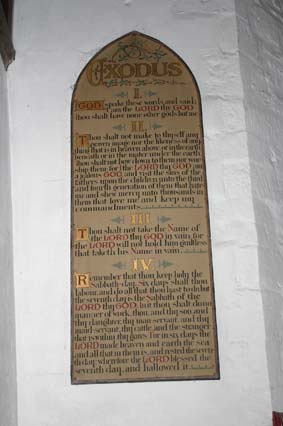 EXODUS
I.
GOD spake these words, and said;
I am the LORD thy GOD
Thou shalt have none other gods but me
II.
Thou shalt not make to thyself any
graven image nor the likeness of any
thing that is in heaven above or in the earth
beneath or in the water under the earth
Thou shalt not bow down to them nor wor
ship them: for I the LORD thy GOD am
a jealous GOD and visit the sins of the
fathers upon the children unto the third
and fourth generation of them that hate
me and shew mercy unto thousands in
them that love me and keep my
commandments
III.
Thou shalt not take the Name of
the LORD thy GOD in vain, for
the LORD will not hold him guiltless
that taketh his Name in vain
IV.
Remember that thou keep holy the
Sabbath-day. Six days shalt thou
labour, and do all that thou hast to do; but
the seventh day is the Sabbath of the
LORD thy GOD. In it thou shalt do no
manner of work, thou, and thy son and
thy daughter, thy man-servant, and thy
maid-servant, thy cattle, and the stranger
that is within thy gates. For in six days the
LORD made heaven and earth the sea
and all that in them is, and rested the seven
th day: wherefore the LORD blessed the
seventh day, and hallowed it